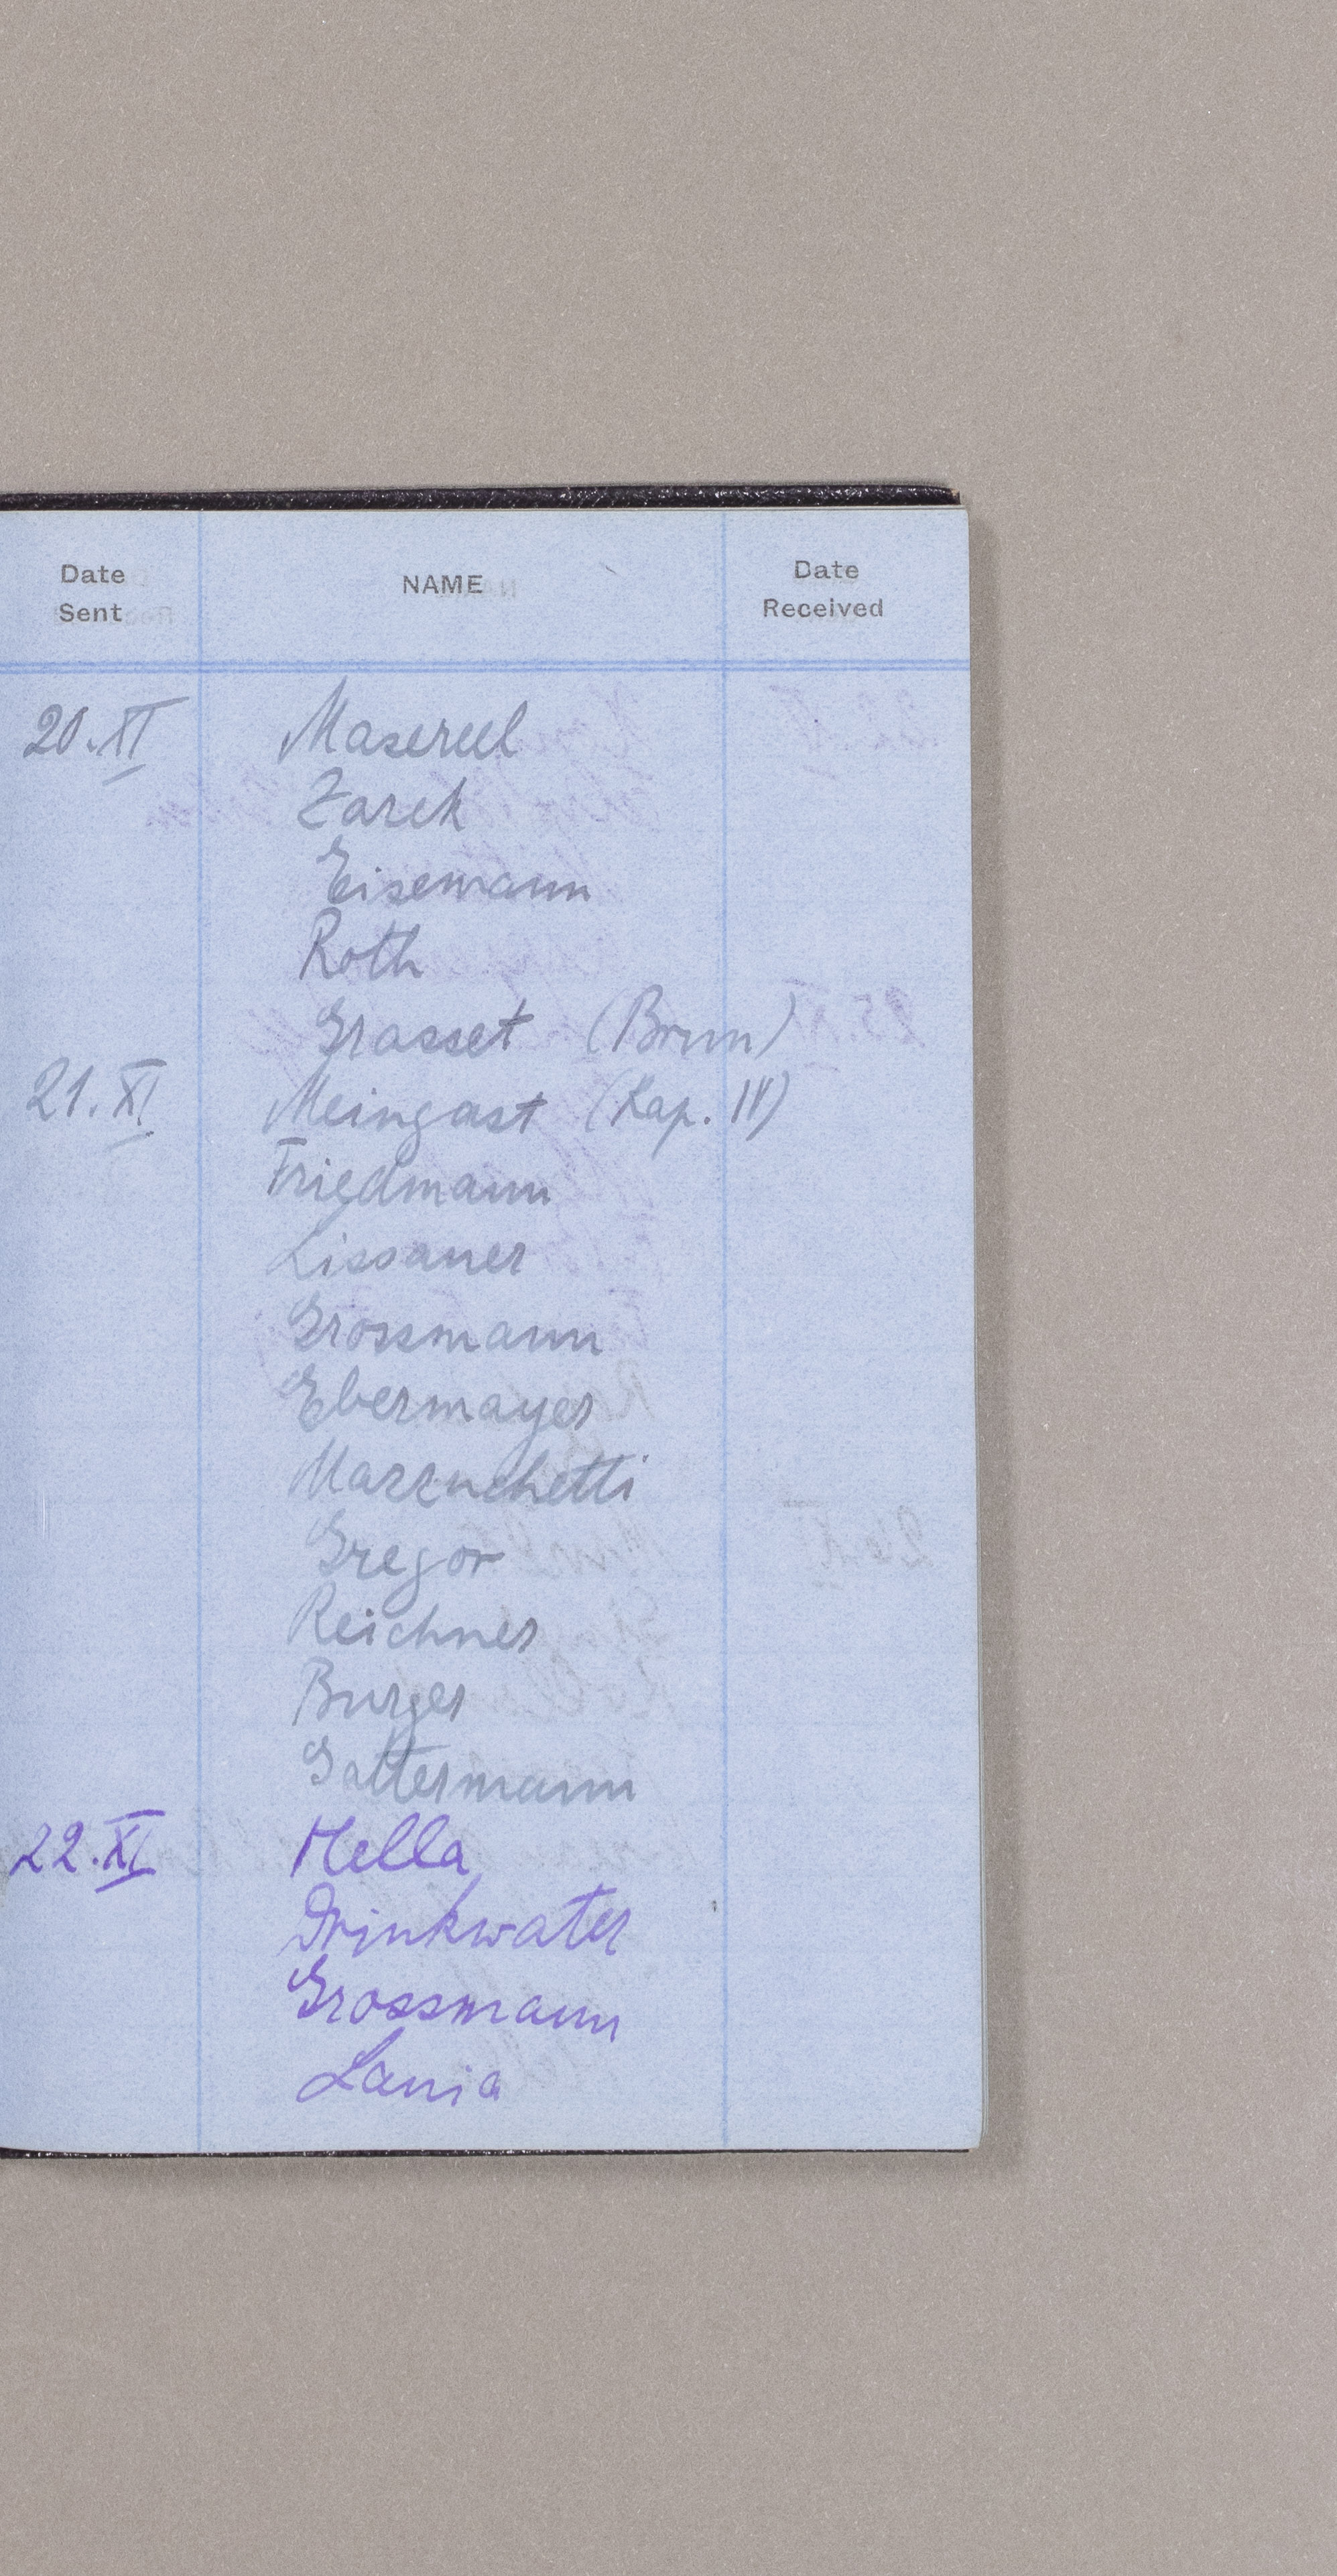 Date Sent NAME Date Received
20.XI Masereel
Zarek
Eisemann
Roth
Grasset (Brun)
21.XI Meingast (Kap. IV)
Friedmann
Lissauer
Grossmann
Ebermayer
Mazzuchetti
Gregor
Reichner
Burger
Gattermann
22.XI Hella
Drinkwater
Grossmann
Lania